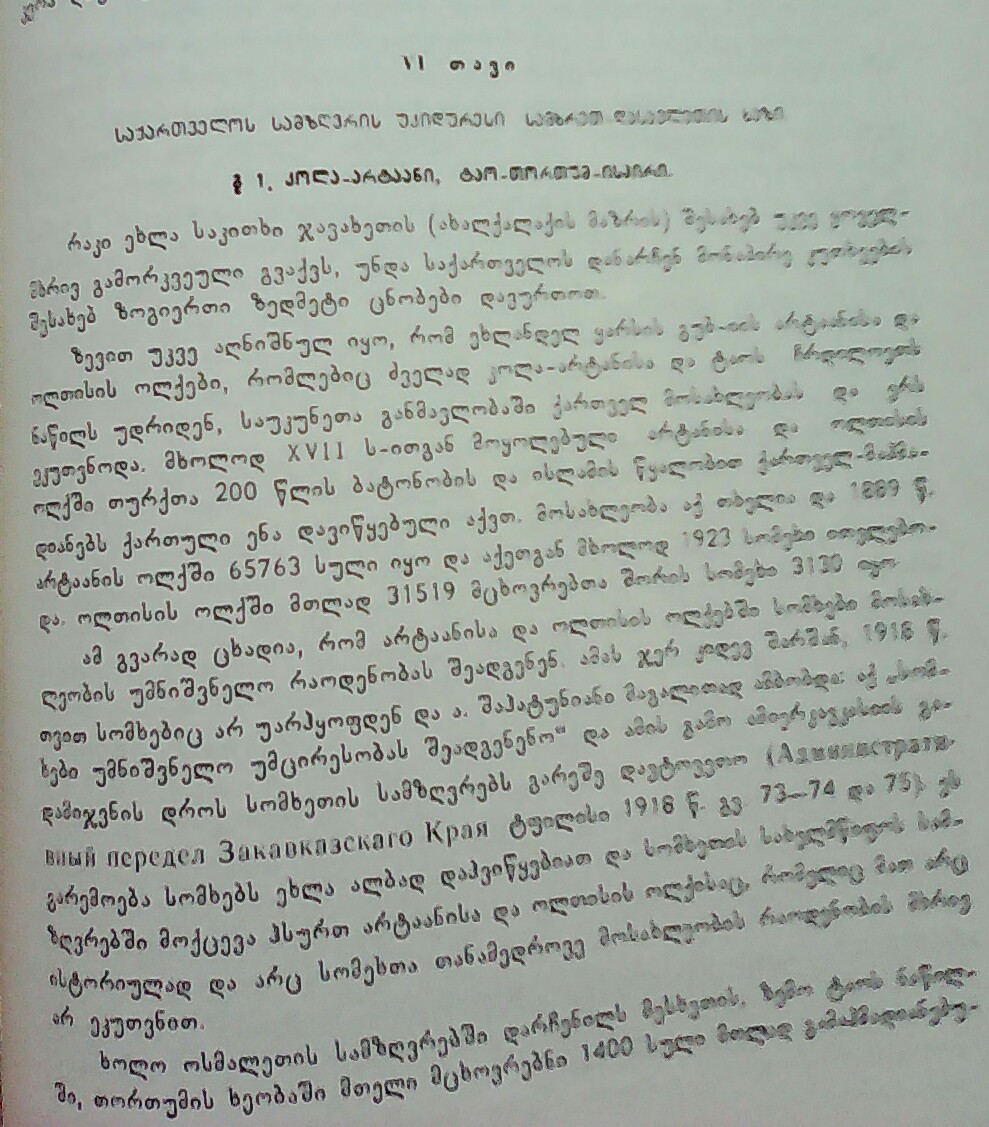 VI თავი
საქართველოს სამზღვრის უკიდურესი სამხრეთ-დასავლეთის ხაზი
§ 1. კოლა-არტაანი, ტაო-თორთუმ-ისპირი.
რაკი ეხლა საკითხი ჯავახეთის (ახალქალაქის მაზრის) შესახებ უკვე ყოველ-
მხრივ გამორკვეული გვაქვს, უნდა საქართველოს დანარჩენ მონაპირე კუთხეების
შესახებ ზოგიერთი ზედმეტი ცნობები დავურთოთ.
ზევით უკვე აღნიშნულ იყო, რომ ეხლანდელ ყარსის გუბ-იის არტაანისა და
ოლთისის ოლქები, რომლებიც ძველად კოლა-არტანისა და ტაოს ჩრდილოეთ
ნაწილს უდრიდენ, საუკუნეთა განმავლობაში ქართველ მოსახლეობას და ერს
ეკუთვნოდა. მხოლოდ XVII ს-ითგან მოყოლებული არტანისა და ოლთისის
ოლქში თურქთა 200 წლის ბატონობის და ისლამის წყალობით ქართველ-მაჰმა-
დიანებს ქართული ენა დავიწყებული აქვთ. მოსახლეობა აქ თხელია და 1889 წ.
არტაანის ოლქში 65763 სული იყო და აქეთგან მხოლოდ 1923 სომეხი ითვლებო-
და. ოლთისის ოლქში მთლად 31519 მცხოვრებთა შორის სომეხი 3130 იყო
ამ გვარად ცხადია, რომ არტაანისა და ოლთისის ოლქებში სომხები მოსახ-
ლეობის უმნიშვნელო რაოდენობას შეადგენენ. ამას ჯერ კიდევ შარშან, 1918 წ.
თვით სომხებიც არ უარჰყოფდენ და ა. შაჰატუნიანი მაგალითად ამბობდა: აქ „სომ-
ხები უმნიშვნელო უმცირესობას შეადგენენო“ და ამის გამო ამიერკავკასიის გა-
დამიჯვნის დროს სომხეთის სამზღვრებს გარეშე დავტოვეთო (Администрати-
вный передел Закавказскаго Края ტფილისი 1918 წ. გვ 73—74 და 75). ეს
გარემოება სომხებს ეხლა ალბად დაჰვიწყებიათ და სომხეთის სახელმწიფოს სამ-
ზღვრებში მოქცევა ჰსურთ არტაანისა და ოლთისის ოლქისაც, რომელიც მათ არც
ისტორიულად და არც სომეხთა თანამედროვე მოსახლეობის რაოდენობის მხრივ
არ ეკუთვნით.
ხოლო ოსმალეთის სამზღვრებში დარჩენილს მესხეთის, ზემო ტაოს ნაწილ-
ში, თორთუმის ხეობაში მთელი მცხოვრებნი 1400 სული მთლად გამაჰმადიანებუ-